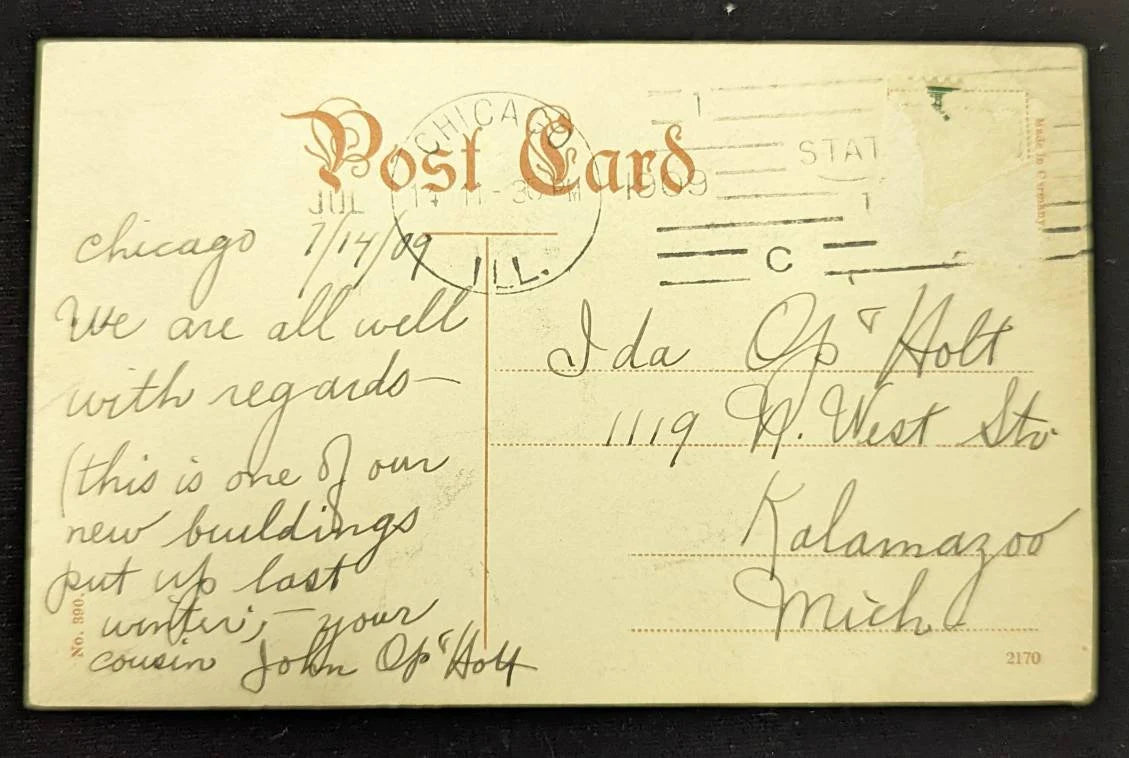 Post Card
CHICAGO
JUL 14 11-30 PM 1909
ILL.
1
STAT
1
C
Made in Germany
Chicago 7/14/09
We are all well
with regards—
(this is one of our
new buildings
put up last
winter; — your
cousin John Op'Holt
Ida Op'Holt
1119 N. West Str.
Kalamazoo
Mich
No. 390.
2170